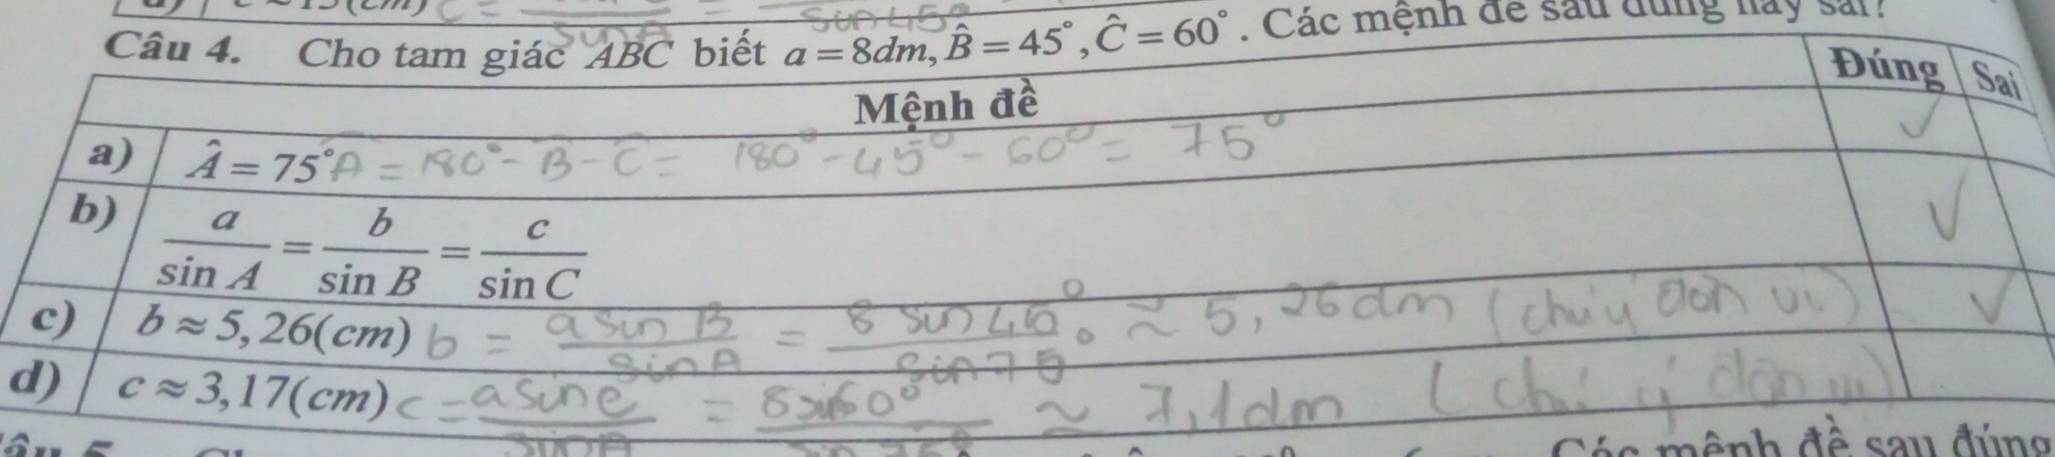 Câu 4. Cho tam giác ABC biết a = 8dm, B̂ = 45°, Ĉ = 60°. Các mệnh đề sau đúng hay sai?
Mệnh đề Đúng Sai
a) Â = 75° A = 180° - B - C = 180° - 45° - 60° = 75° ✓
b) a/sin A = b/sin B = c/sin C ✓
c) b ≈ 5,26(cm) b = a sin B/sin A = 8 sin 45°/sin 75° ≈ 5,26dm (chú ý đơn vị) ✓
d) c ≈ 3,17(cm) c = a sin C/sin A = 8 sin 60°/sin 75° ≈ 7,1dm (chú ý đơn vị)
Các mệnh đề sau đúng